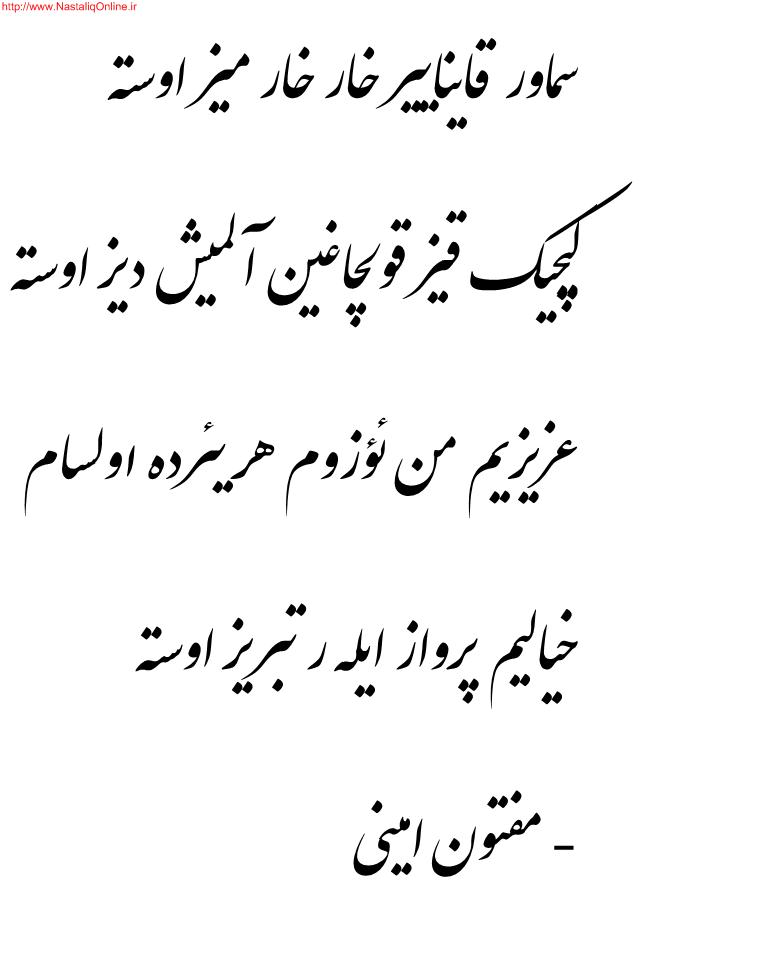 http://www.NastaliqOnline.ir
سماور قایناییر خار خار میز اوسته
کیچیک قیز قولچاغین آلمیش دیز اوسته
عزیزیم من ئؤزوم هر یئرده اولسام
خیالیم پرواز ایله ر تبریز اوسته
- مفتون امینی